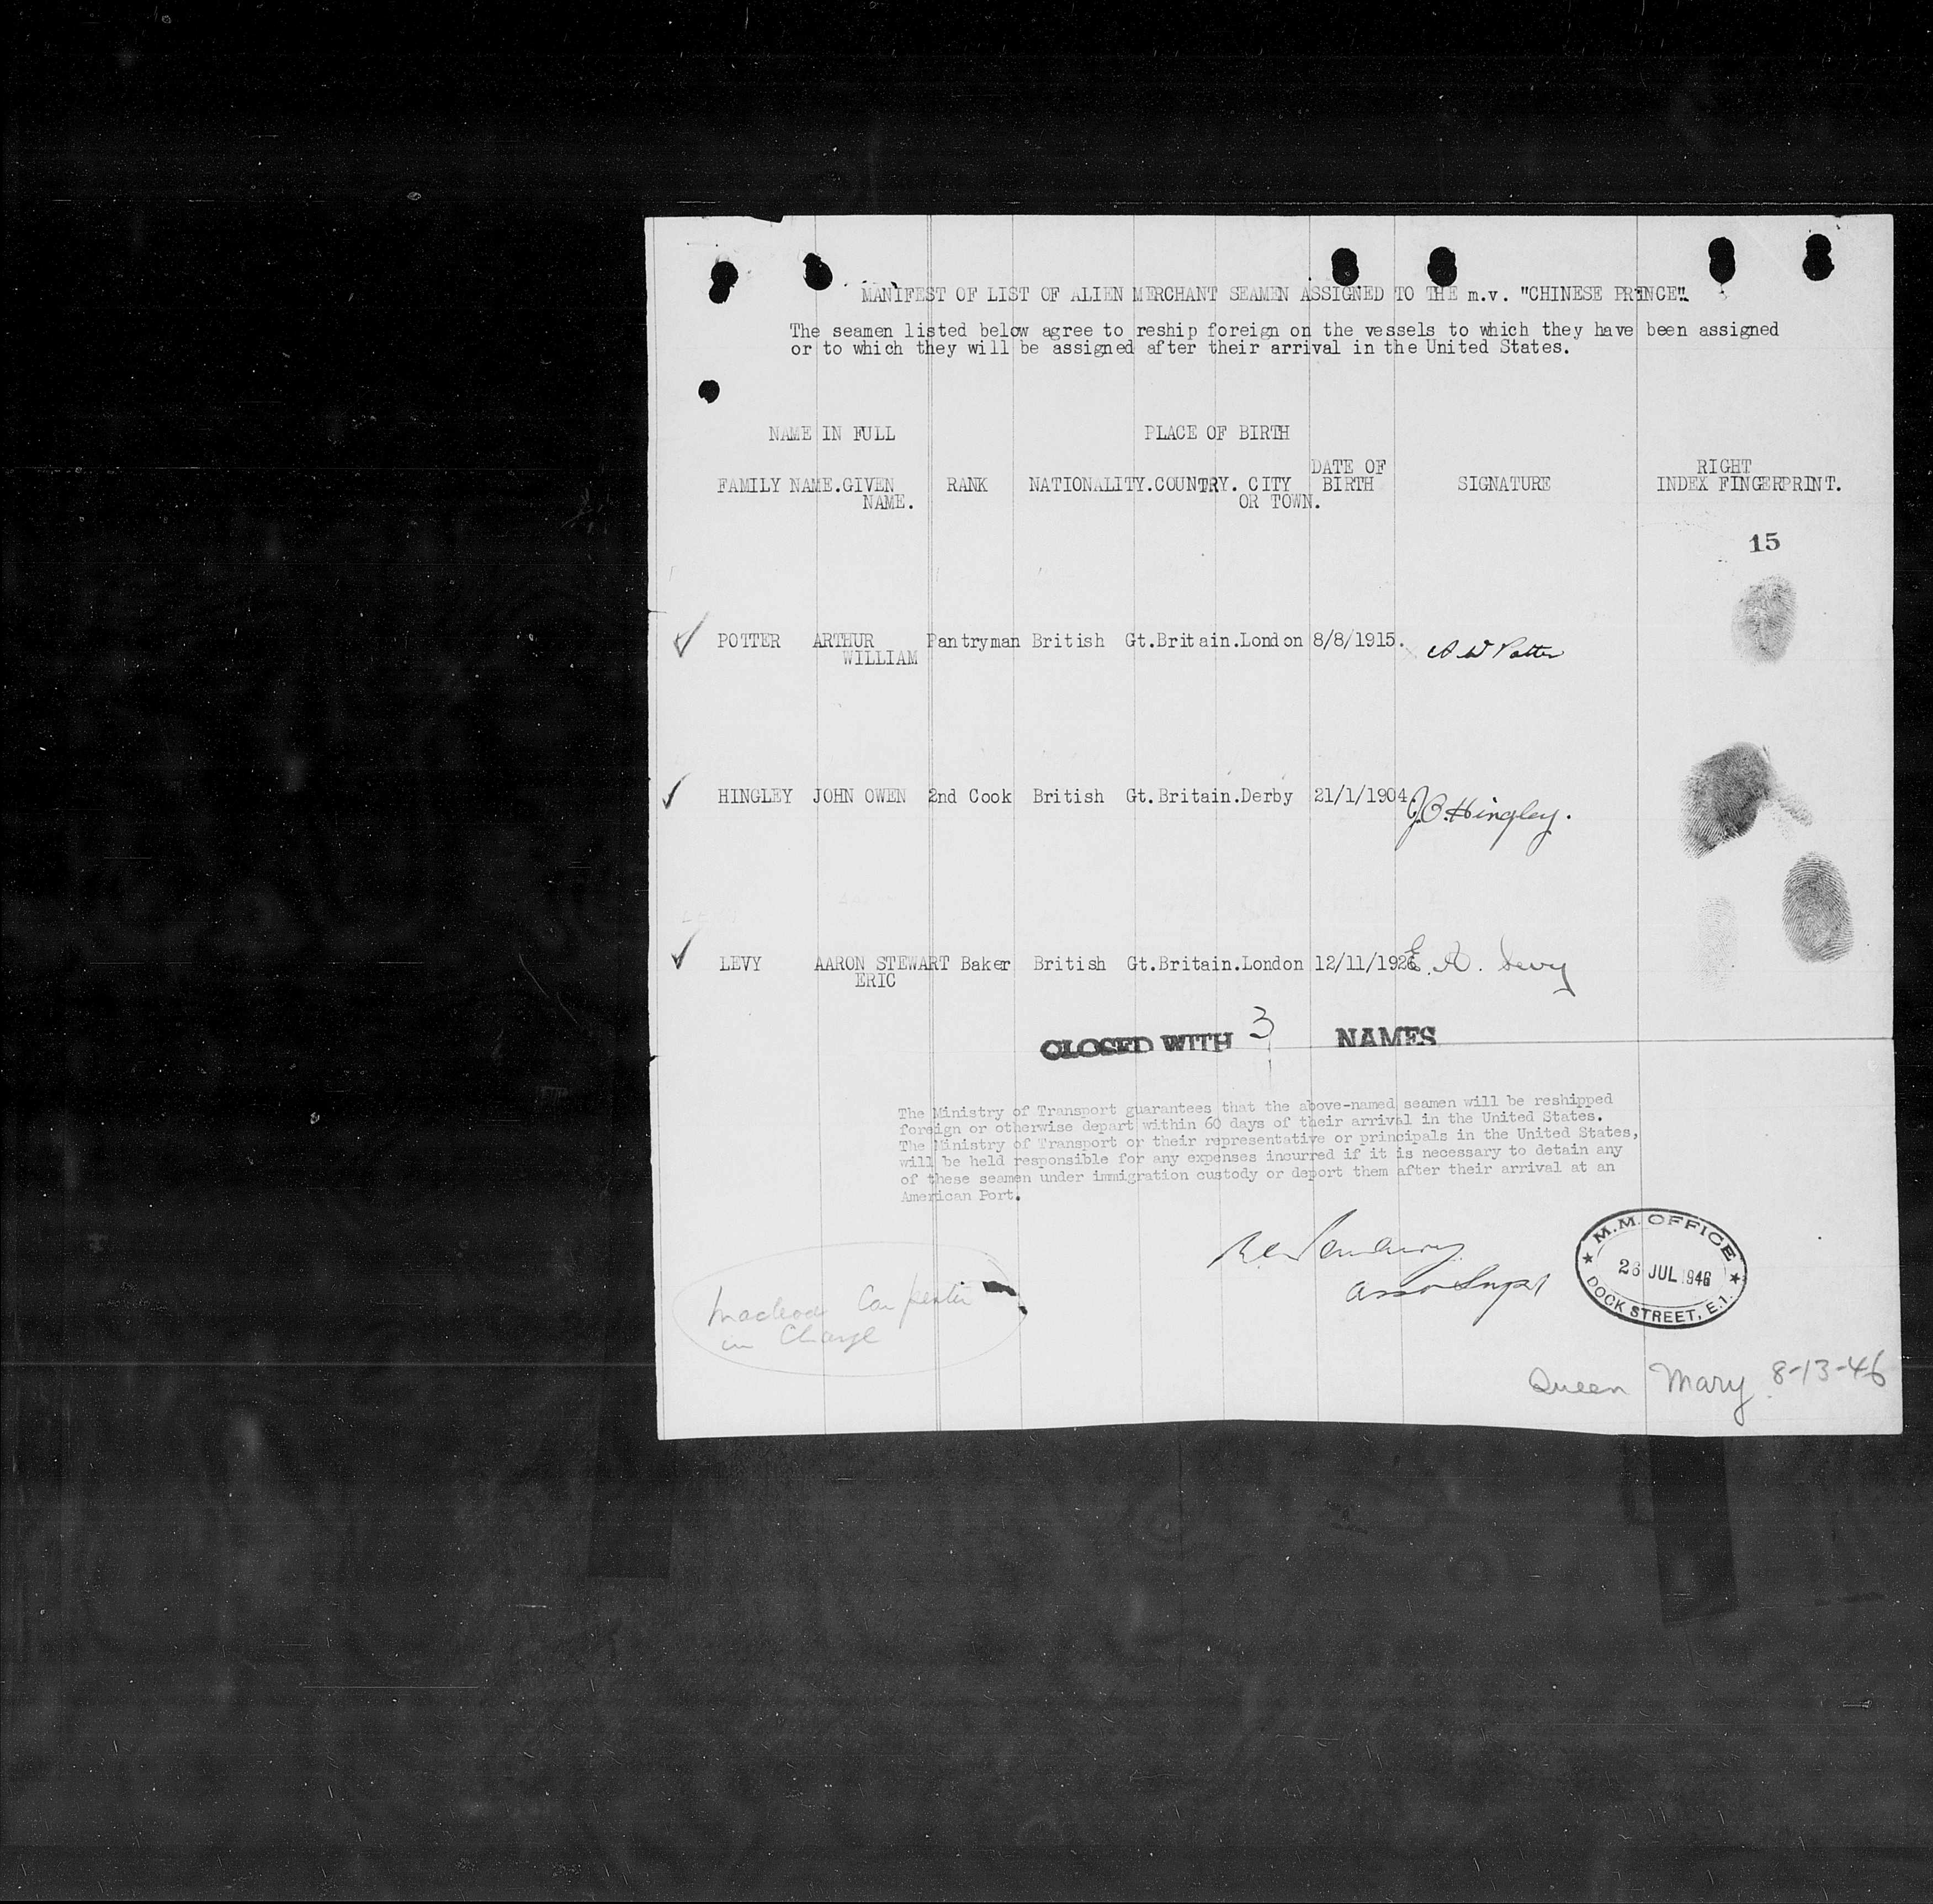 MANIFEST OF LIST OF ALIEN MERCHANT SEAMEN ASSIGNED TO THE m.v. "CHINESE PRINCE".
The seamen listed below agree to reship foreign on the vessels to which they have been assigned
or to which they will be assigned after their arrival in the United States.
NAME IN FULL PLACE OF BIRTH
DATE OF RIGHT
FAMILY NAME. GIVEN RANK NATIONALITY. COUNTRY. CITY BIRTH SIGNATURE INDEX FINGERPRINT.
NAME. OR TOWN.
15
POTTER ARTHUR Pantryman British Gt.Britain.London 8/8/1915. A W Potter
WILLIAM
HINGLEY JOHN OWEN 2nd Cook British Gt.Britain.Derby 21/1/1904 J.O.Hingley.
LEVY AARON STEWART Baker British Gt.Britain.London 12/11/1926 E. A. Levy
ERIC
CLOSED WITH 3 NAMES
The Ministry of Transport guarantees that the above-named seamen will be reshipped
foreign or otherwise depart within 60 days of their arrival in the United States.
The Ministry of Transport or their representative or principals in the United States,
will be held responsible for any expenses incurred if it is necessary to detain any
of these seamen under immigration custody or deport them after their arrival at an
American Port.
M.M. OFFICE
26 JUL 1946
DOCK STREET, E.1.
Carpenter
in Charge
Queen Mary 8-13-46